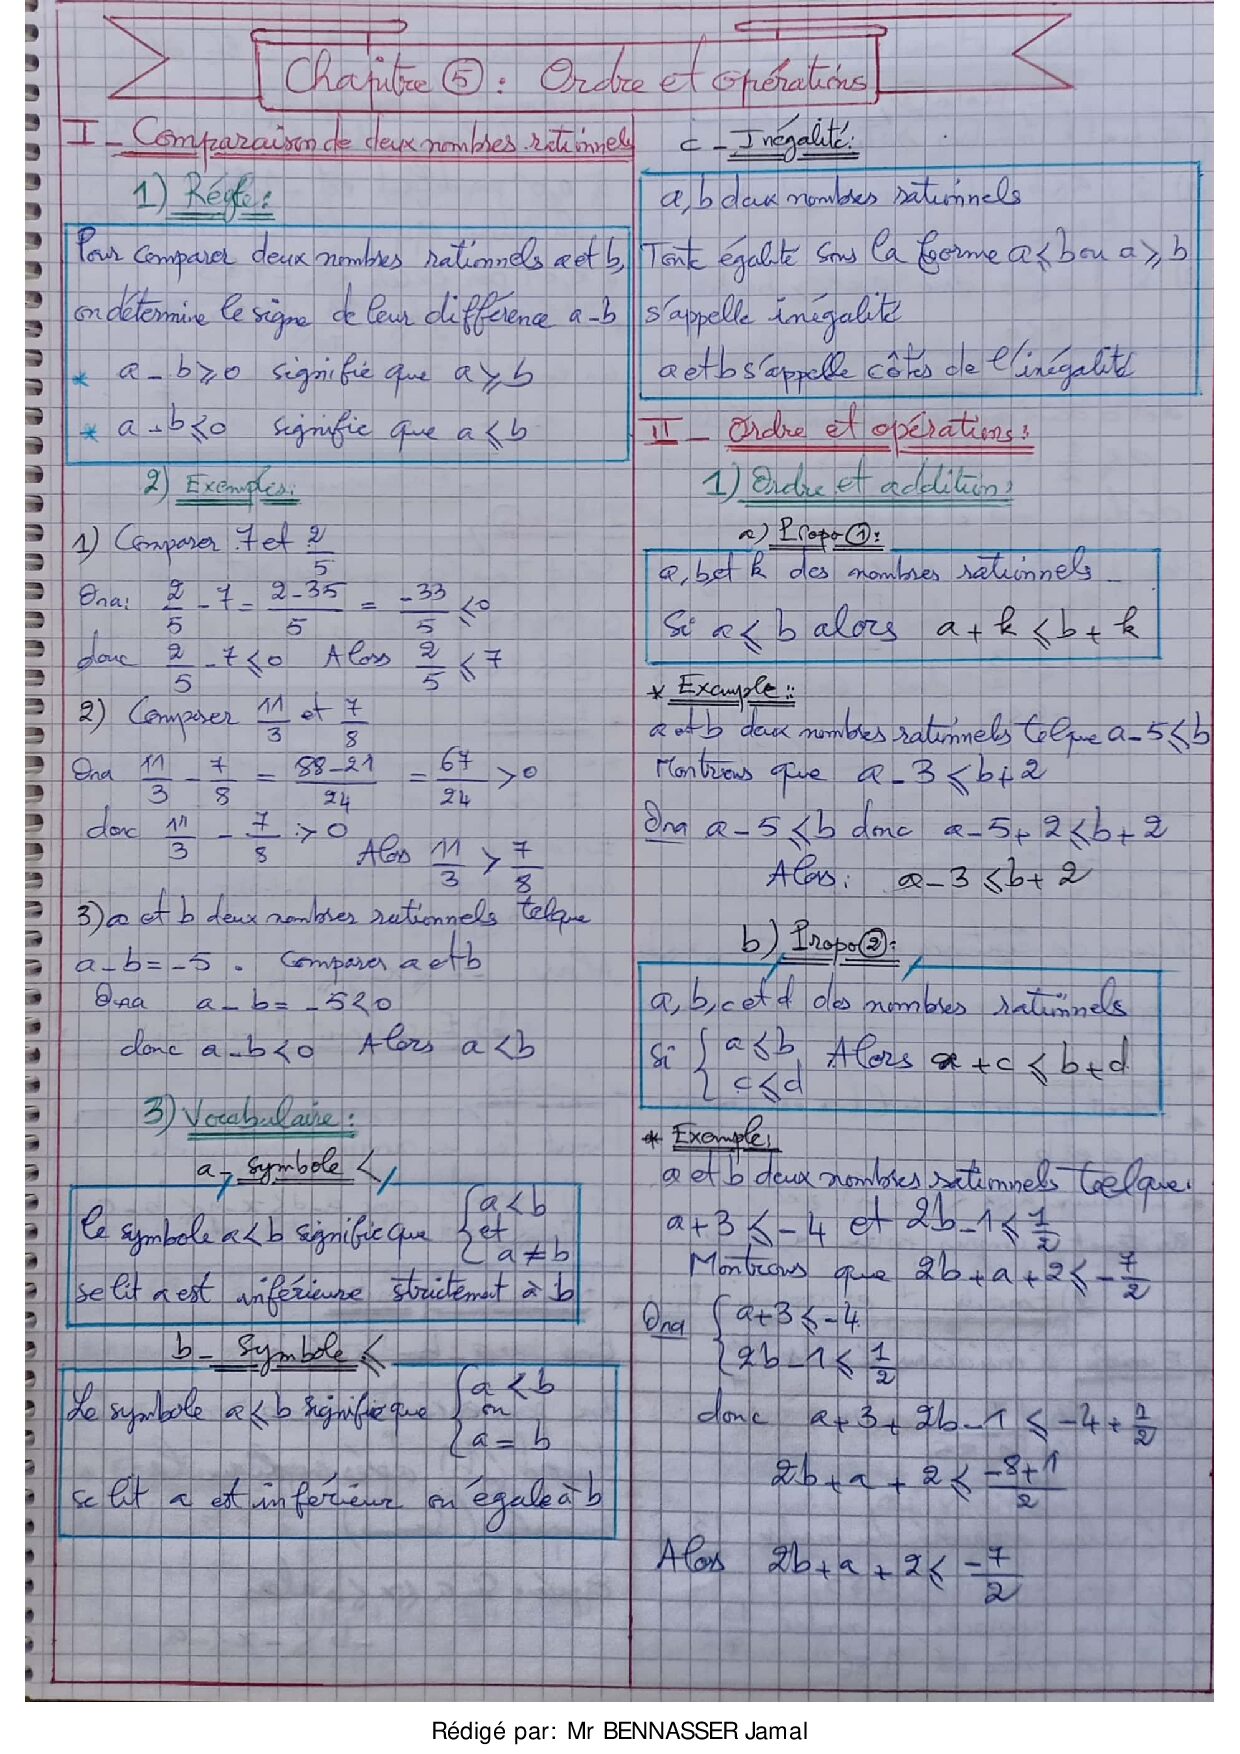 Chapitre ⑤ : Ordre et opérations
I - Comparaison de deux nombres rationnels
1) Régle :
Pour comparer deux nombres rationnels a et b,
on détermine le signe de leur différence a-b
* a - b ⩾ 0 signifie que a ⩾ b
* a - b ⩽ 0 signifie que a ⩽ b
2) Exemples :
1) Comparer 7 et 2/5
Ona: 2/5 - 7 = (2-35)/5 = -33/5 ⩽ 0
donc 2/5 - 7 ⩽ 0 Alors 2/5 ⩽ 7
2) Comparer 11/3 et 7/8
Ona 11/3 - 7/8 = (88-21)/24 = 67/24 > 0
donc 11/3 - 7/8 > 0
Alors 11/3 > 7/8
3) a et b deux nombres rationnels telque
a - b = -5 . Comparer a et b
Ona a - b = -5 < 0
donc a - b < 0 Alors a < b
3) Vocabulaire :
a - Symbole <
le symbole a < b signifie que { a < b et a ≠ b
se lit a est inférieure strictement à b
b - Symbole ⩽
Le symbole a ⩽ b signifie que { a < b ou a = b
se lit a est inférieur ou égale à b
c - Inégalité :
a, b deux nombres rationnels
Tout égalité sous la forme a ⩽ b ou a ⩾ b
s'appelle inégalité
a et b s'appelle côtés de l'inégalité
II - Ordre et opérations :
1) Ordre et addition :
a) Propo ① :
a, b, et k des nombres rationnels
Si a ⩽ b alors a + k ⩽ b + k
* Example :
a et b deux nombres rationnels telque a - 5 ⩽ b
Montrons que a - 3 ⩽ b + 2
Ona a - 5 ⩽ b donc a - 5 + 2 ⩽ b + 2
Alors : a - 3 ⩽ b + 2
b) Propo ② :
a, b, c et d des nombres rationnels
Si { a ⩽ b c ⩽ d Alors a + c ⩽ b + d
* Exemple :
a et b deux nombres rationnels telque :
a + 3 ⩽ -4 et 2b - 1 ⩽ 1/2
Montrons que 2b + a + 2 ⩽ -7/2
Ona { a + 3 ⩽ -4
2b - 1 ⩽ 1/2
donc a + 3 + 2b - 1 ⩽ -4 + 1/2
2b + a + 2 ⩽ (-8+1)/2
Alors 2b + a + 2 ⩽ -7/2
Rédigé par: Mr BENNASSER Jamal